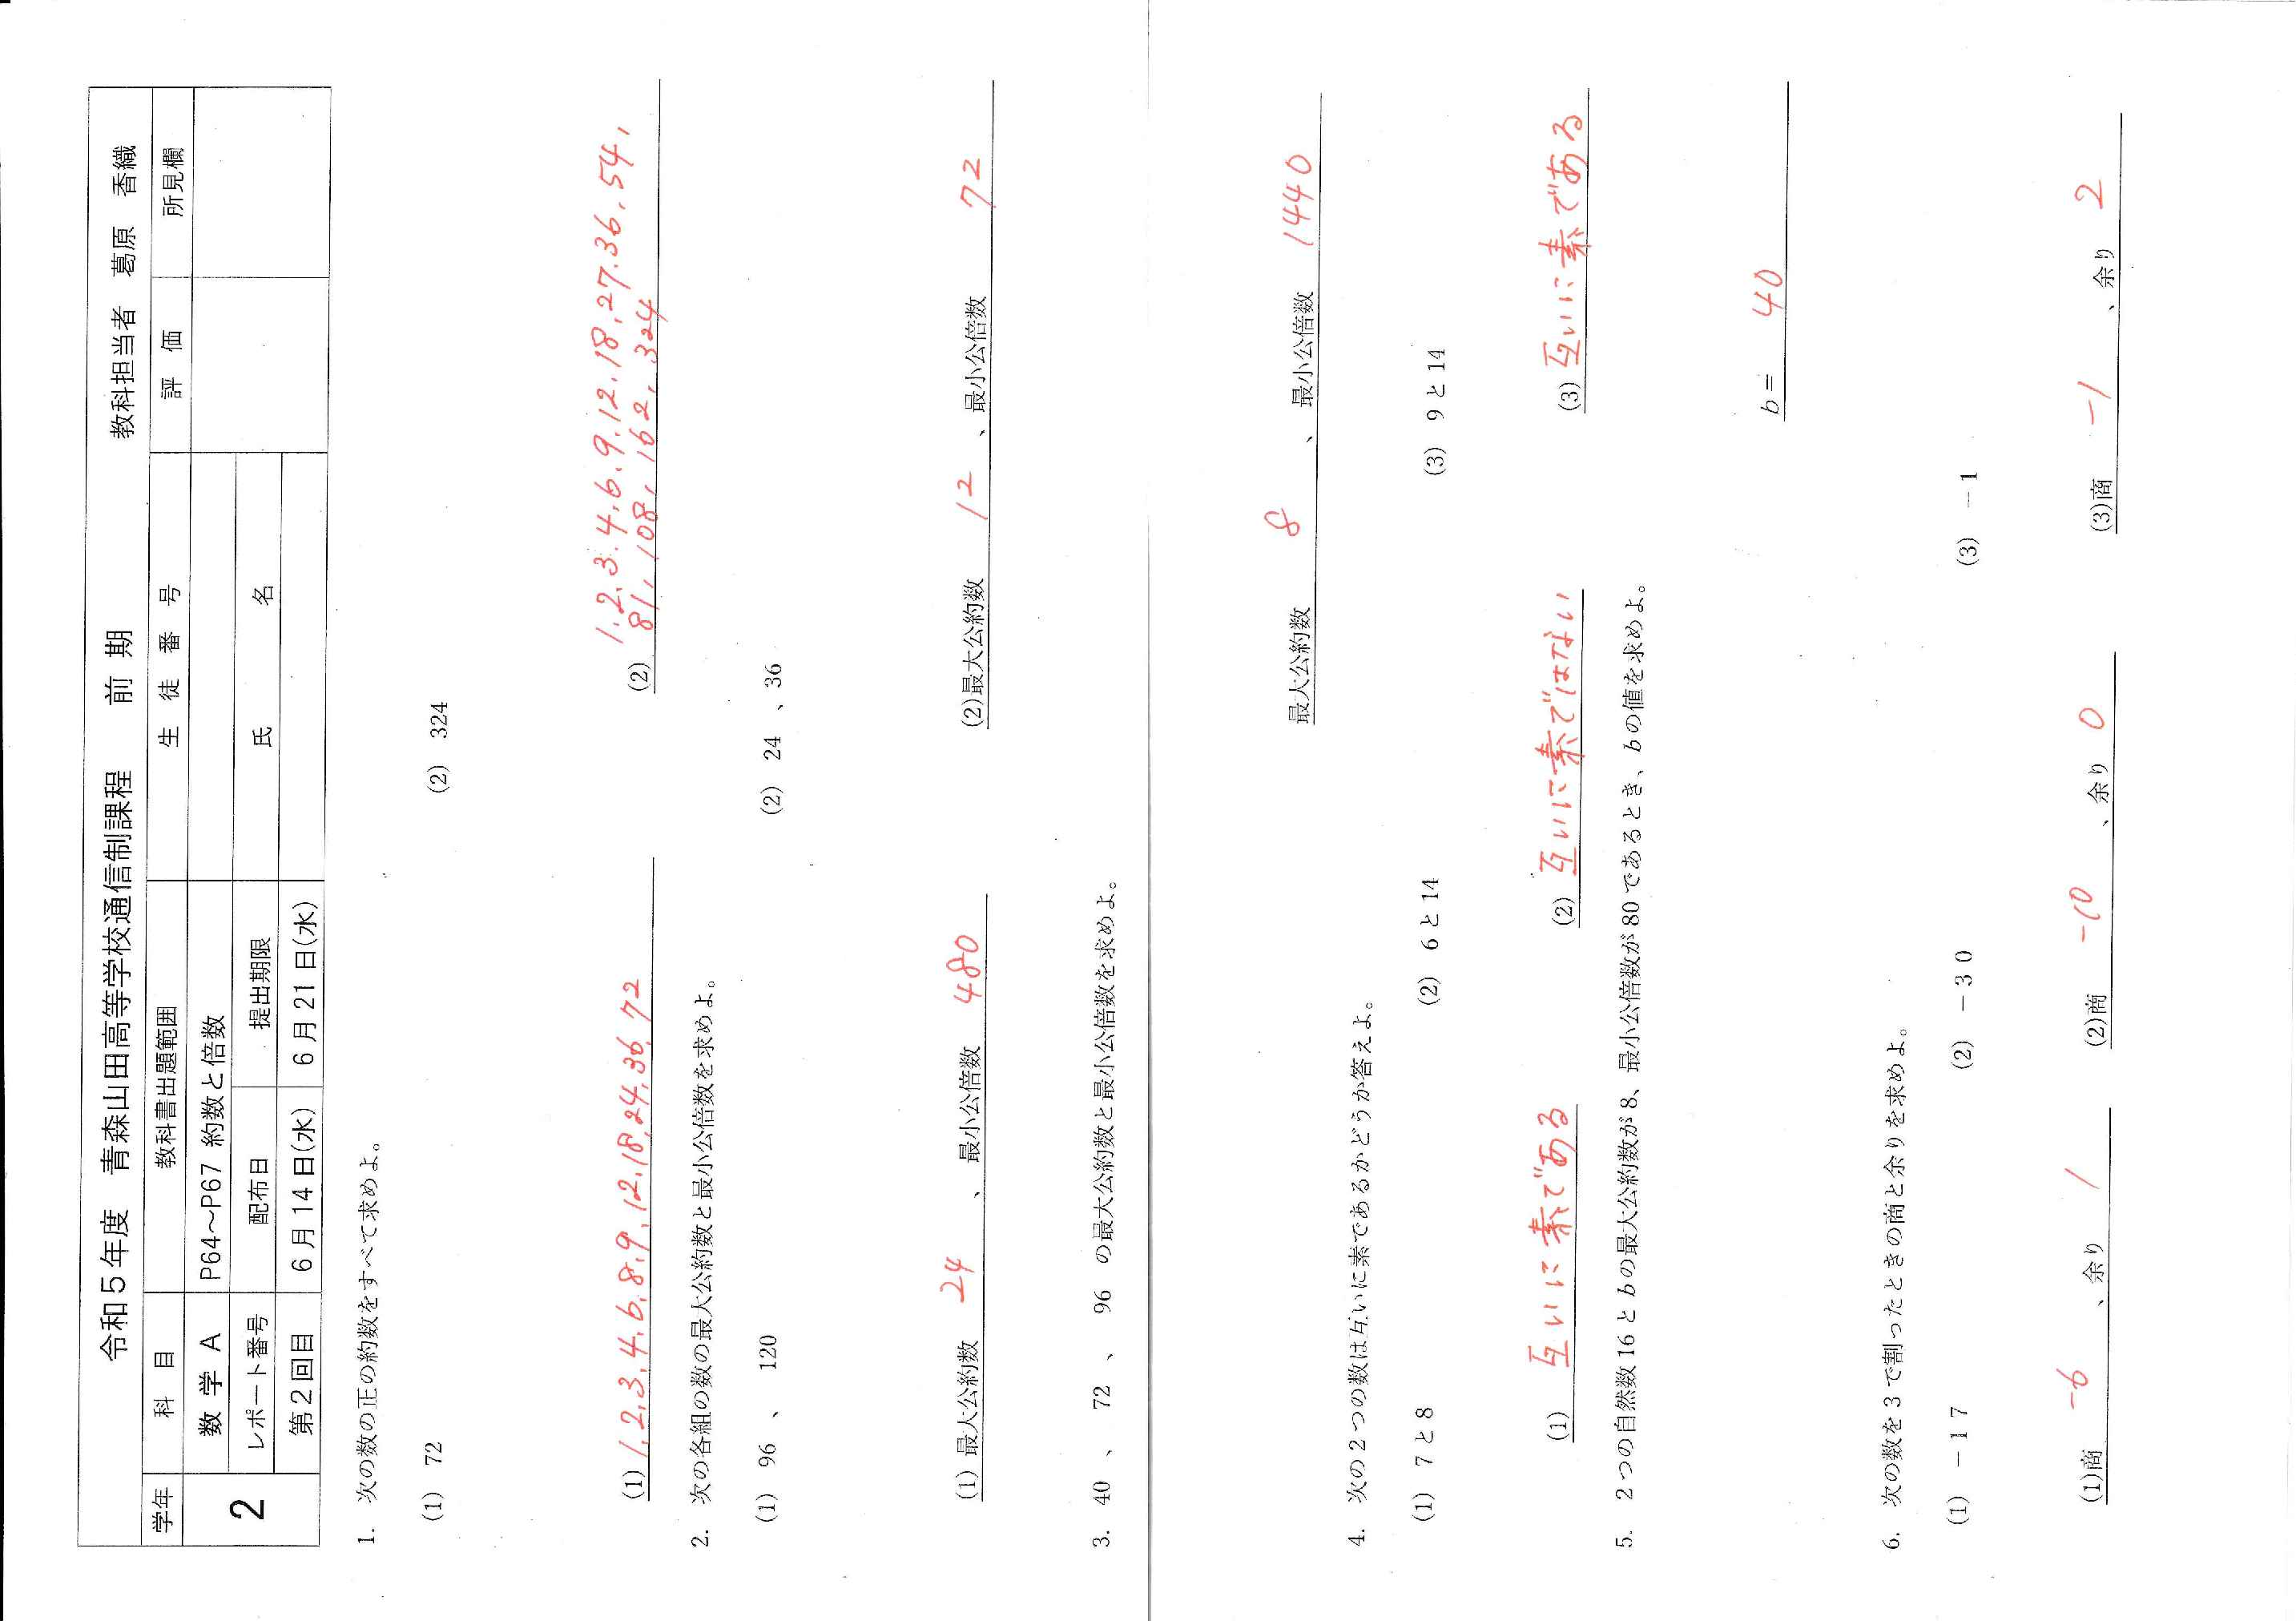 令和５年度　青森山田高等学校通信制課程　　前 期　　教科担当者　葛原　香織
学年　科 目　教科書出題範囲　生 徒 番 号　評 価　所見欄
2　数 学 A　P64～P67 約数と倍数
レポート番号　配布日　提出期限　氏　名
第２回目　6 月 14 日(水)　6 月 21 日(水)
1. 次の数の正の約数をすべて求めよ。
(1) 72　(2) 324
(1) 1,2,3,4,6,8,9,12,18,24,36,72
(2) 1,2,3,4,6,9,12,18,27,36,54,
81,108,162,324
2. 次の各組の数の最大公約数と最小公倍数を求めよ。
(1) 96 、 120　(2) 24 、36
(1) 最大公約数 24 、 最小公倍数 480　(2)最大公約数 12 、最小公倍数 72
3. 40 、 72 、 96 の最大公約数と最小公倍数を求めよ。
最大公約数 8 、 最小公倍数 1440
4. 次の２つの数は互いに素であるかどうか答えよ。
(1) 7 と 8　(2) 6 と 14　(3) 9 と 14
(1) 互いに素である　(2) 互いに素ではない　(3) 互いに素である
5. ２つの自然数 16 と b の最大公約数が 8、最小公倍数が 80 であるとき、b の値を求めよ。
b = 40
6. 次の数を 3 で割ったときの商と余りを求めよ。
(1) －１７　(2) －３０　(3) －１
(1)商 -6 、余り 1　(2)商 -10 、余り 0　(3)商 -1 、余り 2